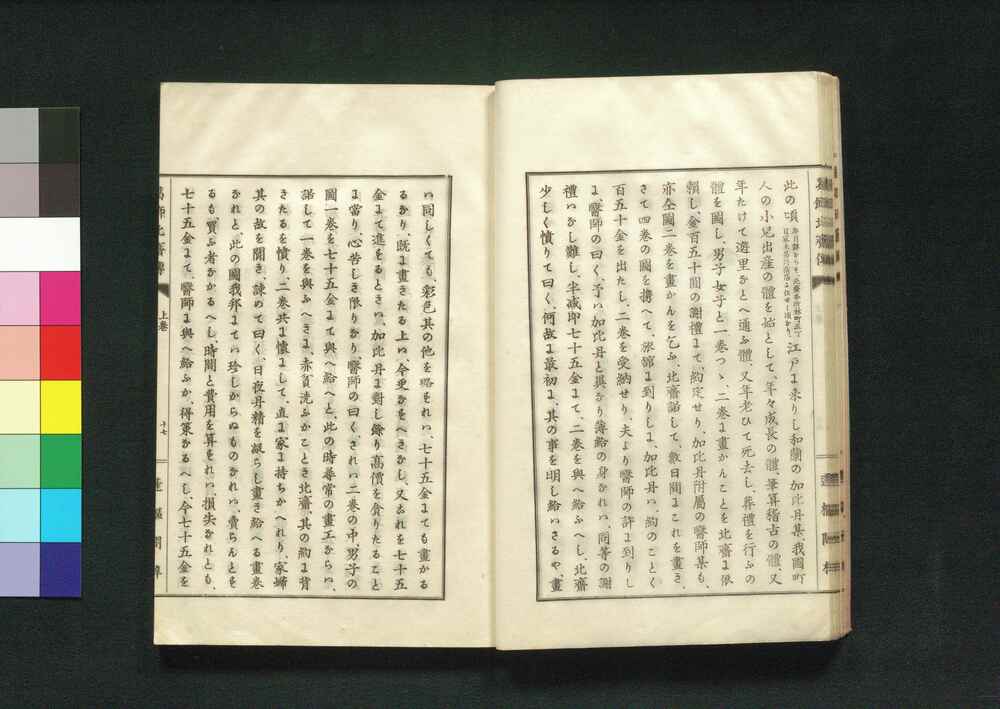 此の頃
江戸ま来りし和蘭の加比丹某、我國町
人の小児出産の體を始として、年々成長の體、筆算稽古の體、又
年たけて遊里かとへ通ふ體、又年老ひて死去し、葬禮を行ふの
體を圖し、男子女子と一巻つゝ二巻ま畫かんことを北齋ま依
頼し、金百五十間の謝禮まて、約定せり、加比丹附屬の醫師某も、
亦仝圖二巻を畫かんを乞ふ、北齋諾して、數日間まこれを畫き、
さて四巻の圖を携へて、旅舘ま到りしま、加比丹ハ、約のことく
百五十金を出たし、二巻を受納せり、夫より醫師の許ま到りし
ま、醫師の曰く、予ハ加比丹と異かり薄給の身かれハ、同等の謝
禮ハかし難し、半減即七十五金まて、二巻を與へ給ふへし、北齋
少しく憤りて曰く、何故ま最初ま、其の事を明し給ハさるや、畫
ハ同しくても、彩色其の他を略をれハ、七十五金まても畫かる
るかり、既ま畫きたる上ハ、今更かをへきかし、又志れを七十五
金まて進をるときハ、加比丹ま對し餘り高價を貪りたること
ま當り、心苦しき限りかり、醫師の曰く、されハ二巻の中、男子の
圖一巻を七十五金まて與へ給へと、此の時尋常の畫工からハ、
諾して一巻を與ふへきま、赤貧洗ふかことき北齋、其の約ま背
きたるを憤り、二巻共ま懷まして、直ま家ま持ちかへれり、家婦
其の故を聞き、諌めて曰く、日夜丹精を凝らし畫き給へる畫巻
かれと、此の圖我邦まてハ珍しからぬものかれハ、賣らんとを
るも、買ふ者かかるへし、時間と費用を算をれハ、損失かれとも、
七十五金まて、醫師ま與へ給ふか、得策かるへし、今七十五金を
上巻
十七